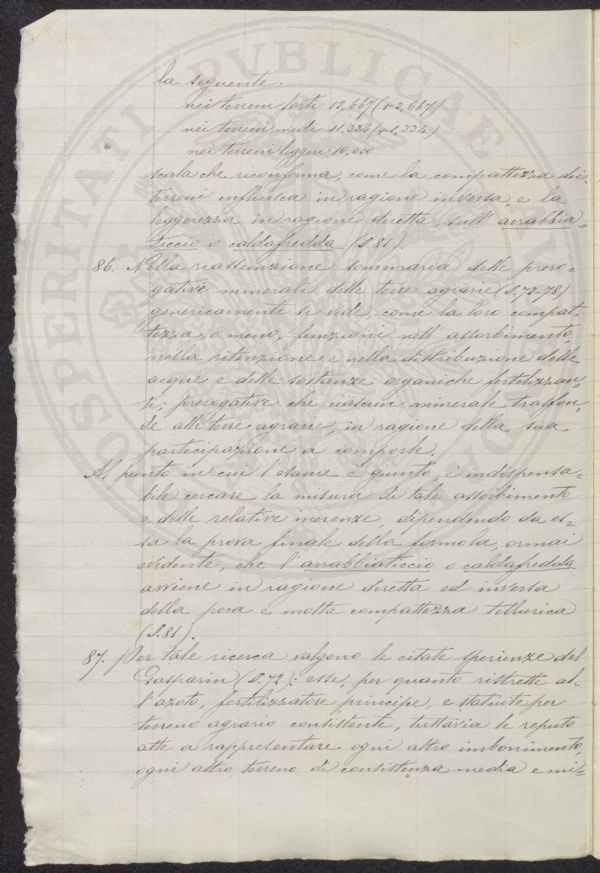 la seguente.
nei terreni forti 12,667 (+2,667)
nei terreni medi 11,334 (+1,334)
nei terreni leggeri 10,000
scala che riconferma, come la compattezza dei
terreni influisca in ragione inversa, e la
leggerezza in ragione diretta, sull'arrabbia-
ticcio o caldafredda (§.81).
86. Nella riassunzione sommaria delle prero-
gative minerali delle terre agrarie (§.72-78)
genericamente si vide, come la loro compat-
tezza, o meno, funzioni nell'assorbimento,
nella ritenzione e nella distribuzione delle
acque e delle sostanze organiche fertilizzan-
ti; prerogative che ciascun minerale trasfon-
de alle terre agrarie, in ragione della sua
partecipazione a comporle.
Al punto in cui l'esame è giunto, è indispensa-
bile cercare la misura di tale assorbimento
e delle relative inerenze, dipendendo da es-
sa la prova finale della formola, ormai
evidente, che l'arrabbiaticcio o caldafredda
avviene in ragione diretta ed inversa
della poca e molta compattezza tellurica
(§.81).
87. Per tale ricerca valgono le citate sperienze del
Gasparin (§.72): esse, per quanto ristrette al-
l'azoto, fertilizzatore principe, e statuite per
terreno agrario consistente, tuttavia le reputo
atte a rappresentare ogni altro imbonimento,
ogni altro terreno di consistenza media e mi-
PROSPERITATI PVBLICAE